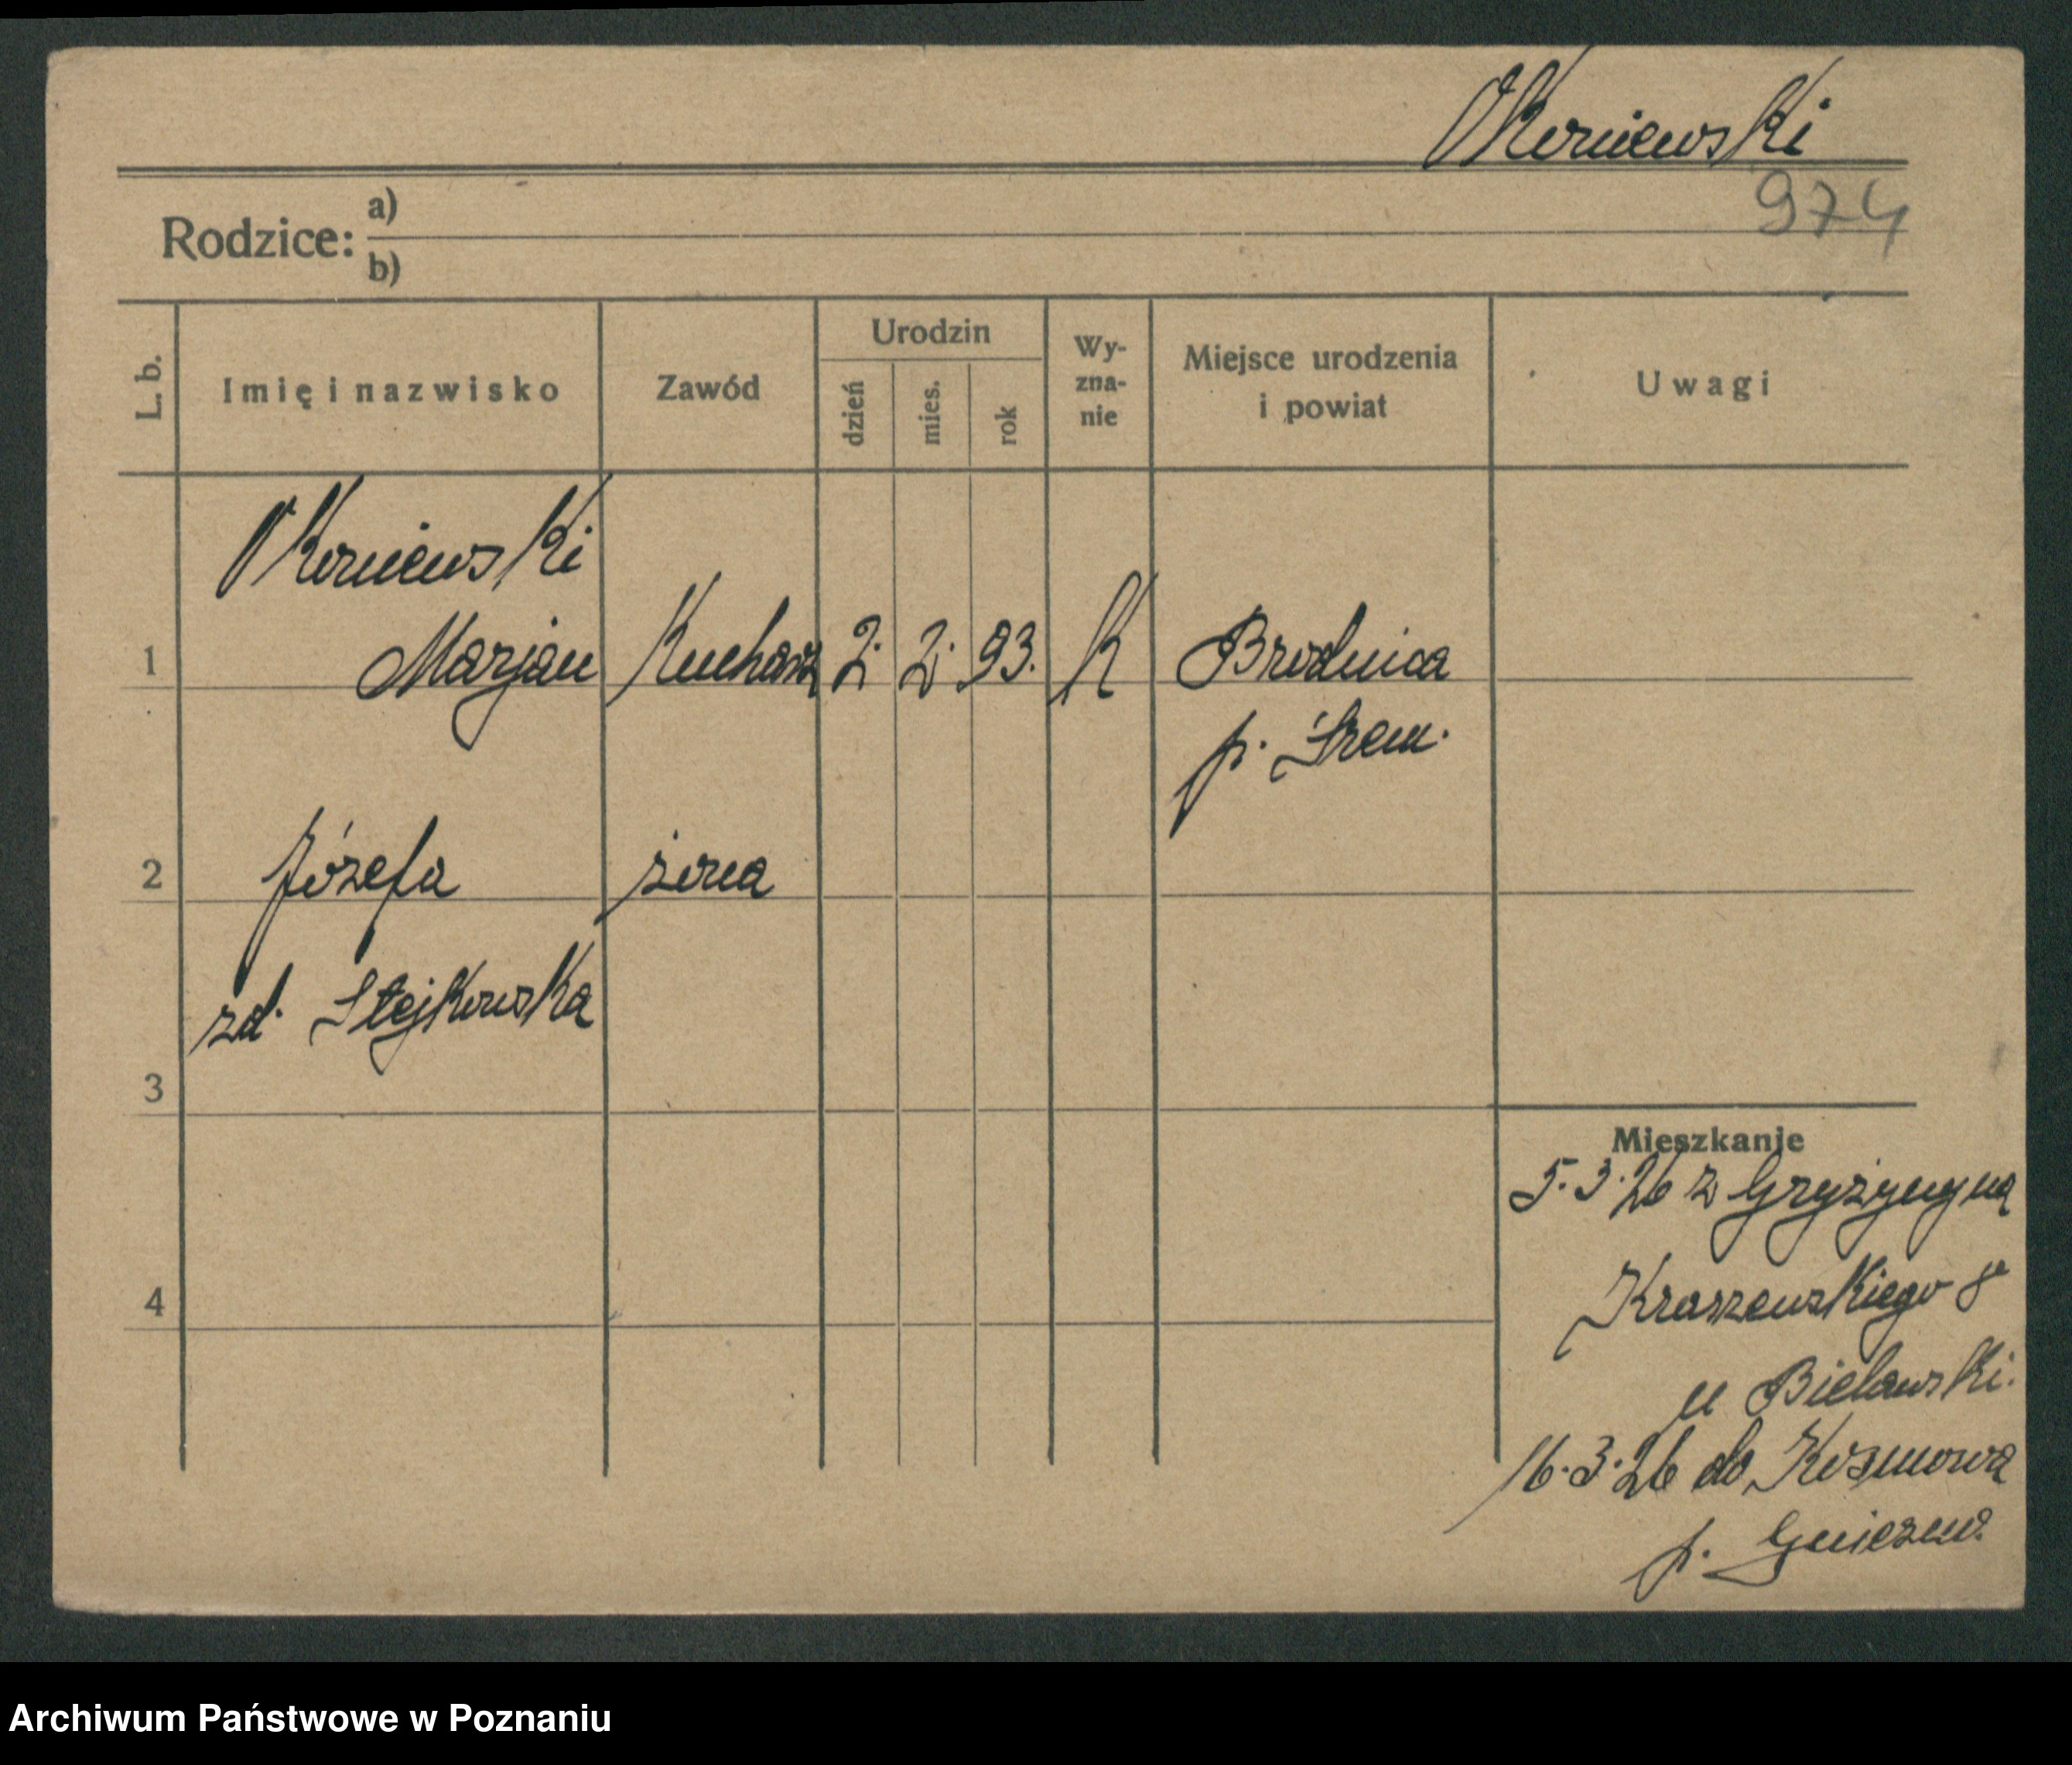 Okoniewski
974
Rodzice: a)
b)
L. b. Imię i nazwisko Zawód Urodzin dzień mies. rok Wy-zna-nie Miejsce urodzenia i powiat Uwagi
Okoniewski
1 Marjan Kucharz 2. 2. 93. K Brodnica
p. Śrem.
2 Józefa żona
zd. Stejkowska
3
Mieszkanie
5.3.26 z Gryżyny na
4 Kraszewskiego 8
u Bielawski.
16.3.26 do Kosmowa
p. Gniezno.
Archiwum Państwowe w Poznaniu